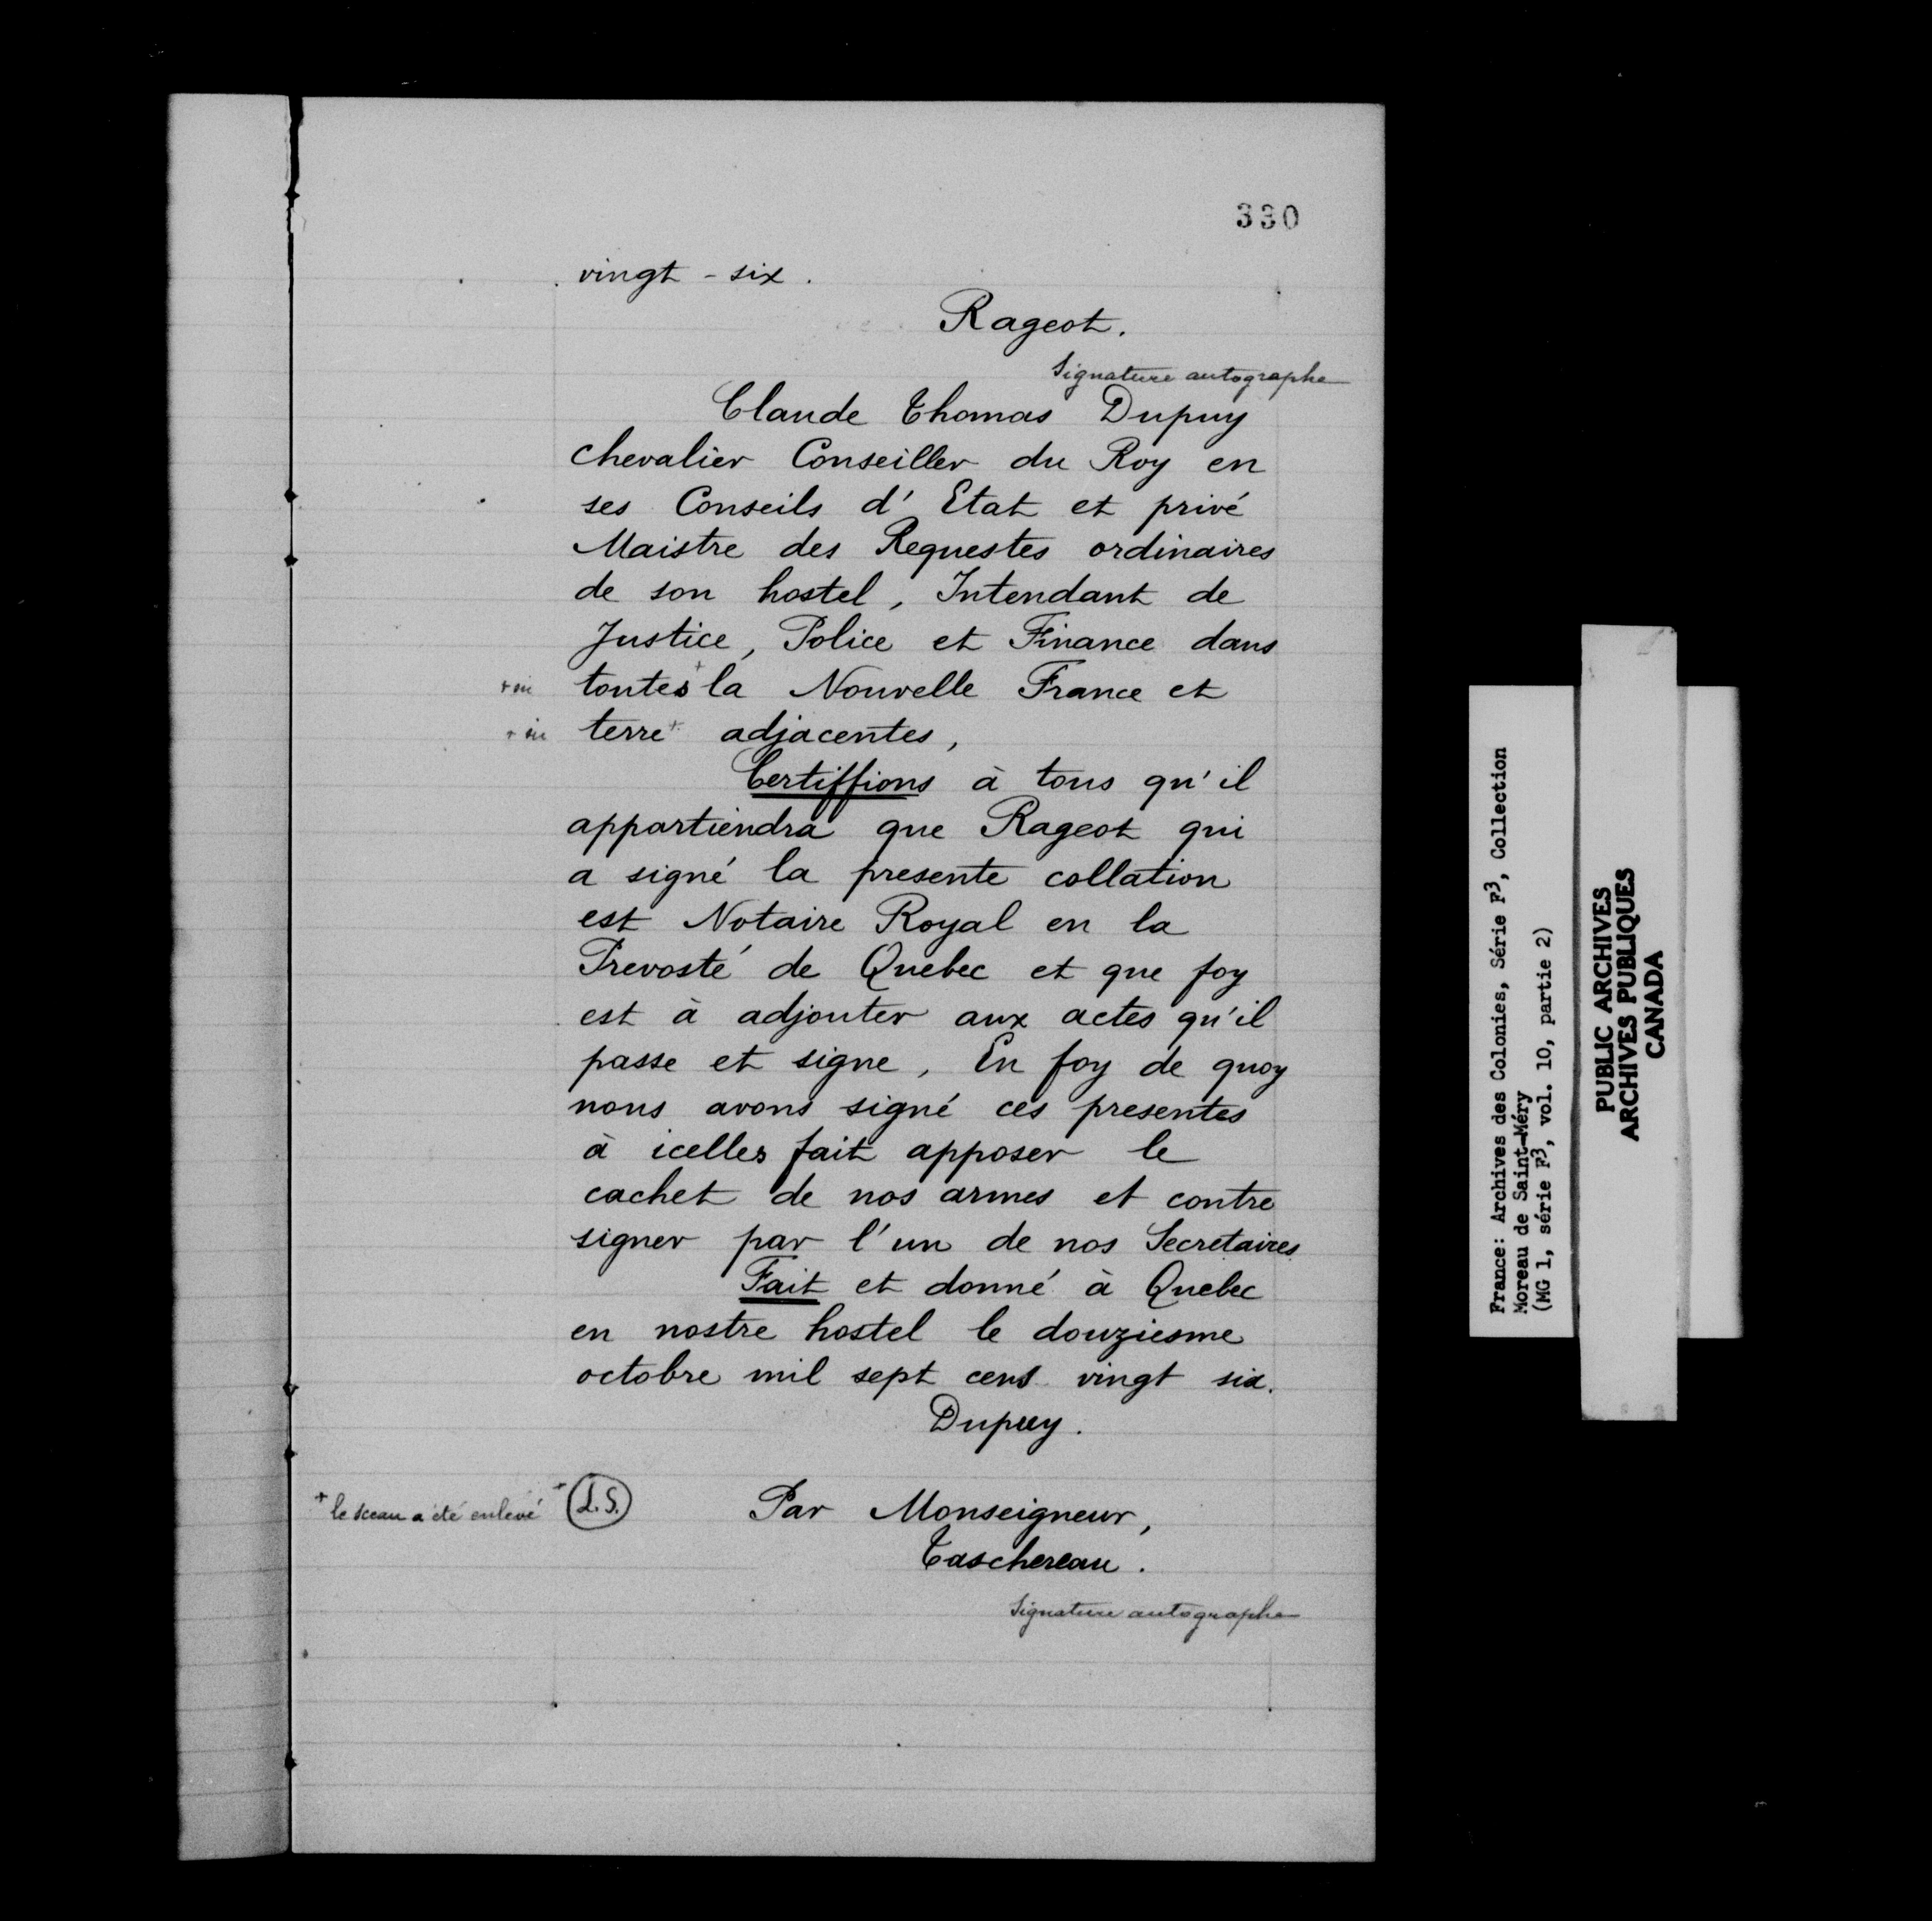 330
vingt - six.
Rageot.
Signature autographe
Claude Thomas Dupuy
chevalier Conseiller du Roy en
ses Conseils d'Etat et privé
Maistre des Requestes ordinaires
de son hostel, Intendant de
Justice, Police et Finance dans
toutes + la Nouvelle France et
terre + adjacentes,
Certiffions à tous qu'il
appartiendra que Rageot qui
a signé la presente collation
est Notaire Royal en la
Prevosté de Quebec et que foy
est à adjouter aux actes qu'il
passe et signe. En foy de quoy
nous avons signé ces presentes
à icelles fait apposer le
cachet de nos armes et contre
signer par l'un de nos Secretaires
Fait et donné à Quebec
en nostre hostel le douziesme
octobre mil sept cens vingt six.
Dupuy.
+ le sceau a été enlevé + L.S. Par Monseigneur,
Taschereau.
Signature autographe
France: Archives des Colonies, Série F3, Collection
Moreau de Saint-Méry
(MG 1, série F3, vol. 10, partie 2)
PUBLIC ARCHIVES
ARCHIVES PUBLIQUES
CANADA